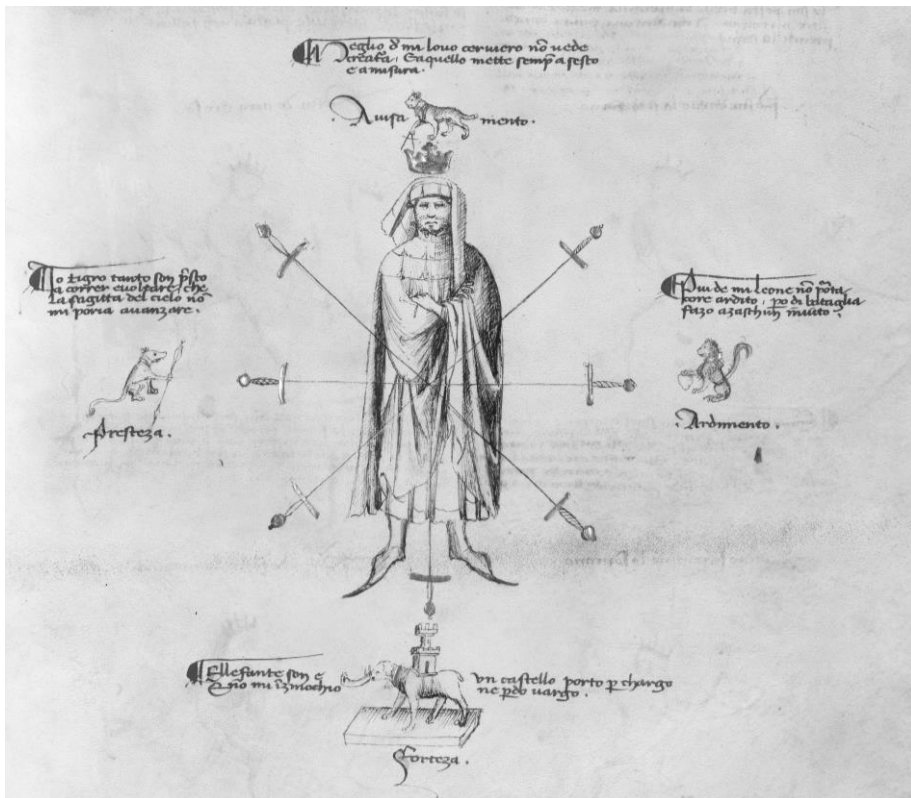 Meglio de mi lovo cerviero nõ vede
creatura, E aquello mette semp̱ a sesto
e a misura.
Avisa mento.
Io tigro tanto son p̃sto
a correr e voltare, che
la sagitta del cielo nõ
mi poria avanzare.
Presteza.
Più de mi leone nõ porta
core ardito, po di bataglia
fazo azaschun invito.
Ardimento.
Ellefante son e
un castello porto p̱ chargo
E nõ mi inzinochio
ne p̱do vargo.
Forteza.